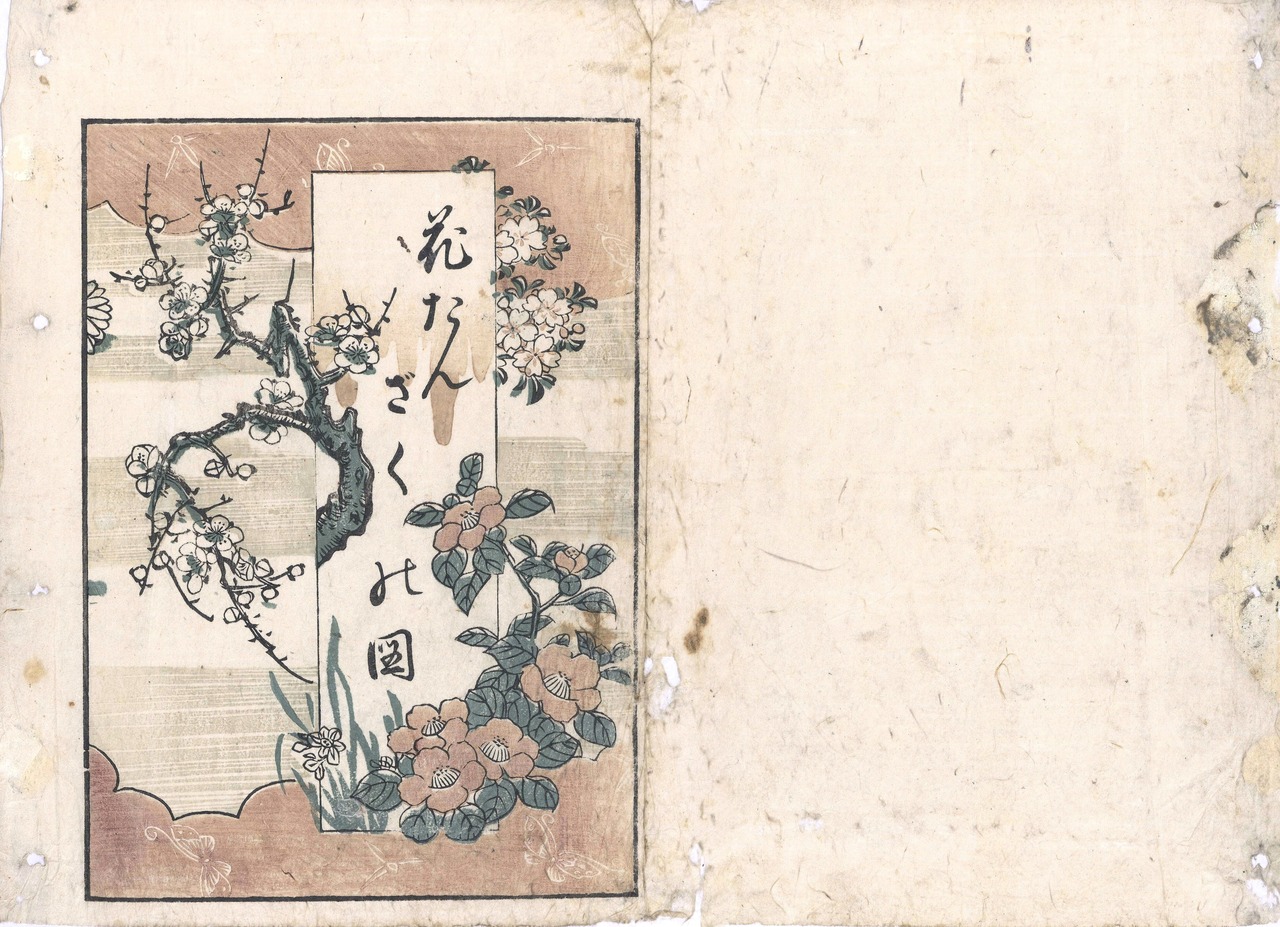 花たん
ざく
の図